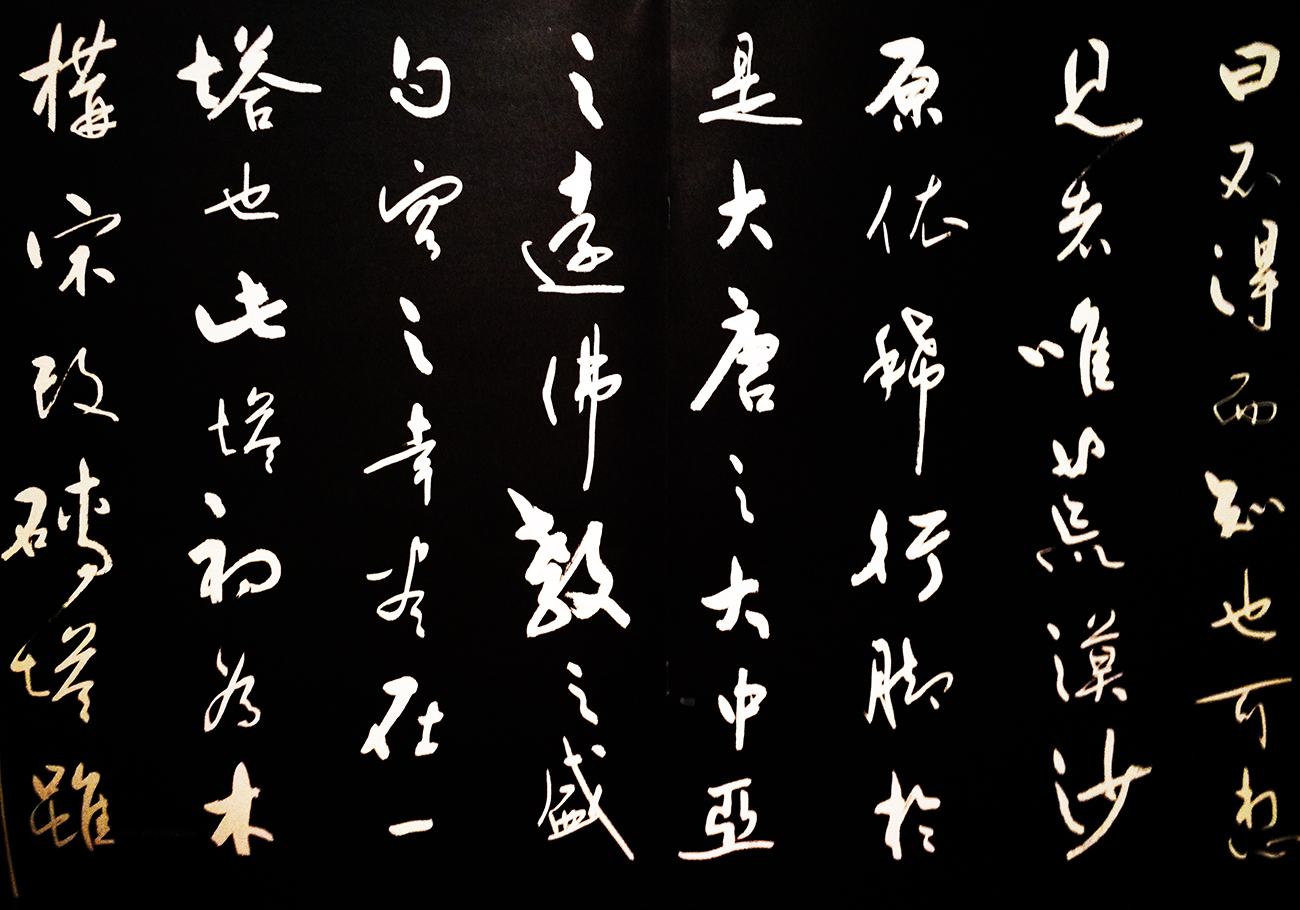 曰不得而知也可想
見者唯荒漠沙
原依稀行脚於
是大唐之大中亞
之遠佛教之盛
句容之幸尽在一
塔也此塔初為木
構宋改磚塔雖